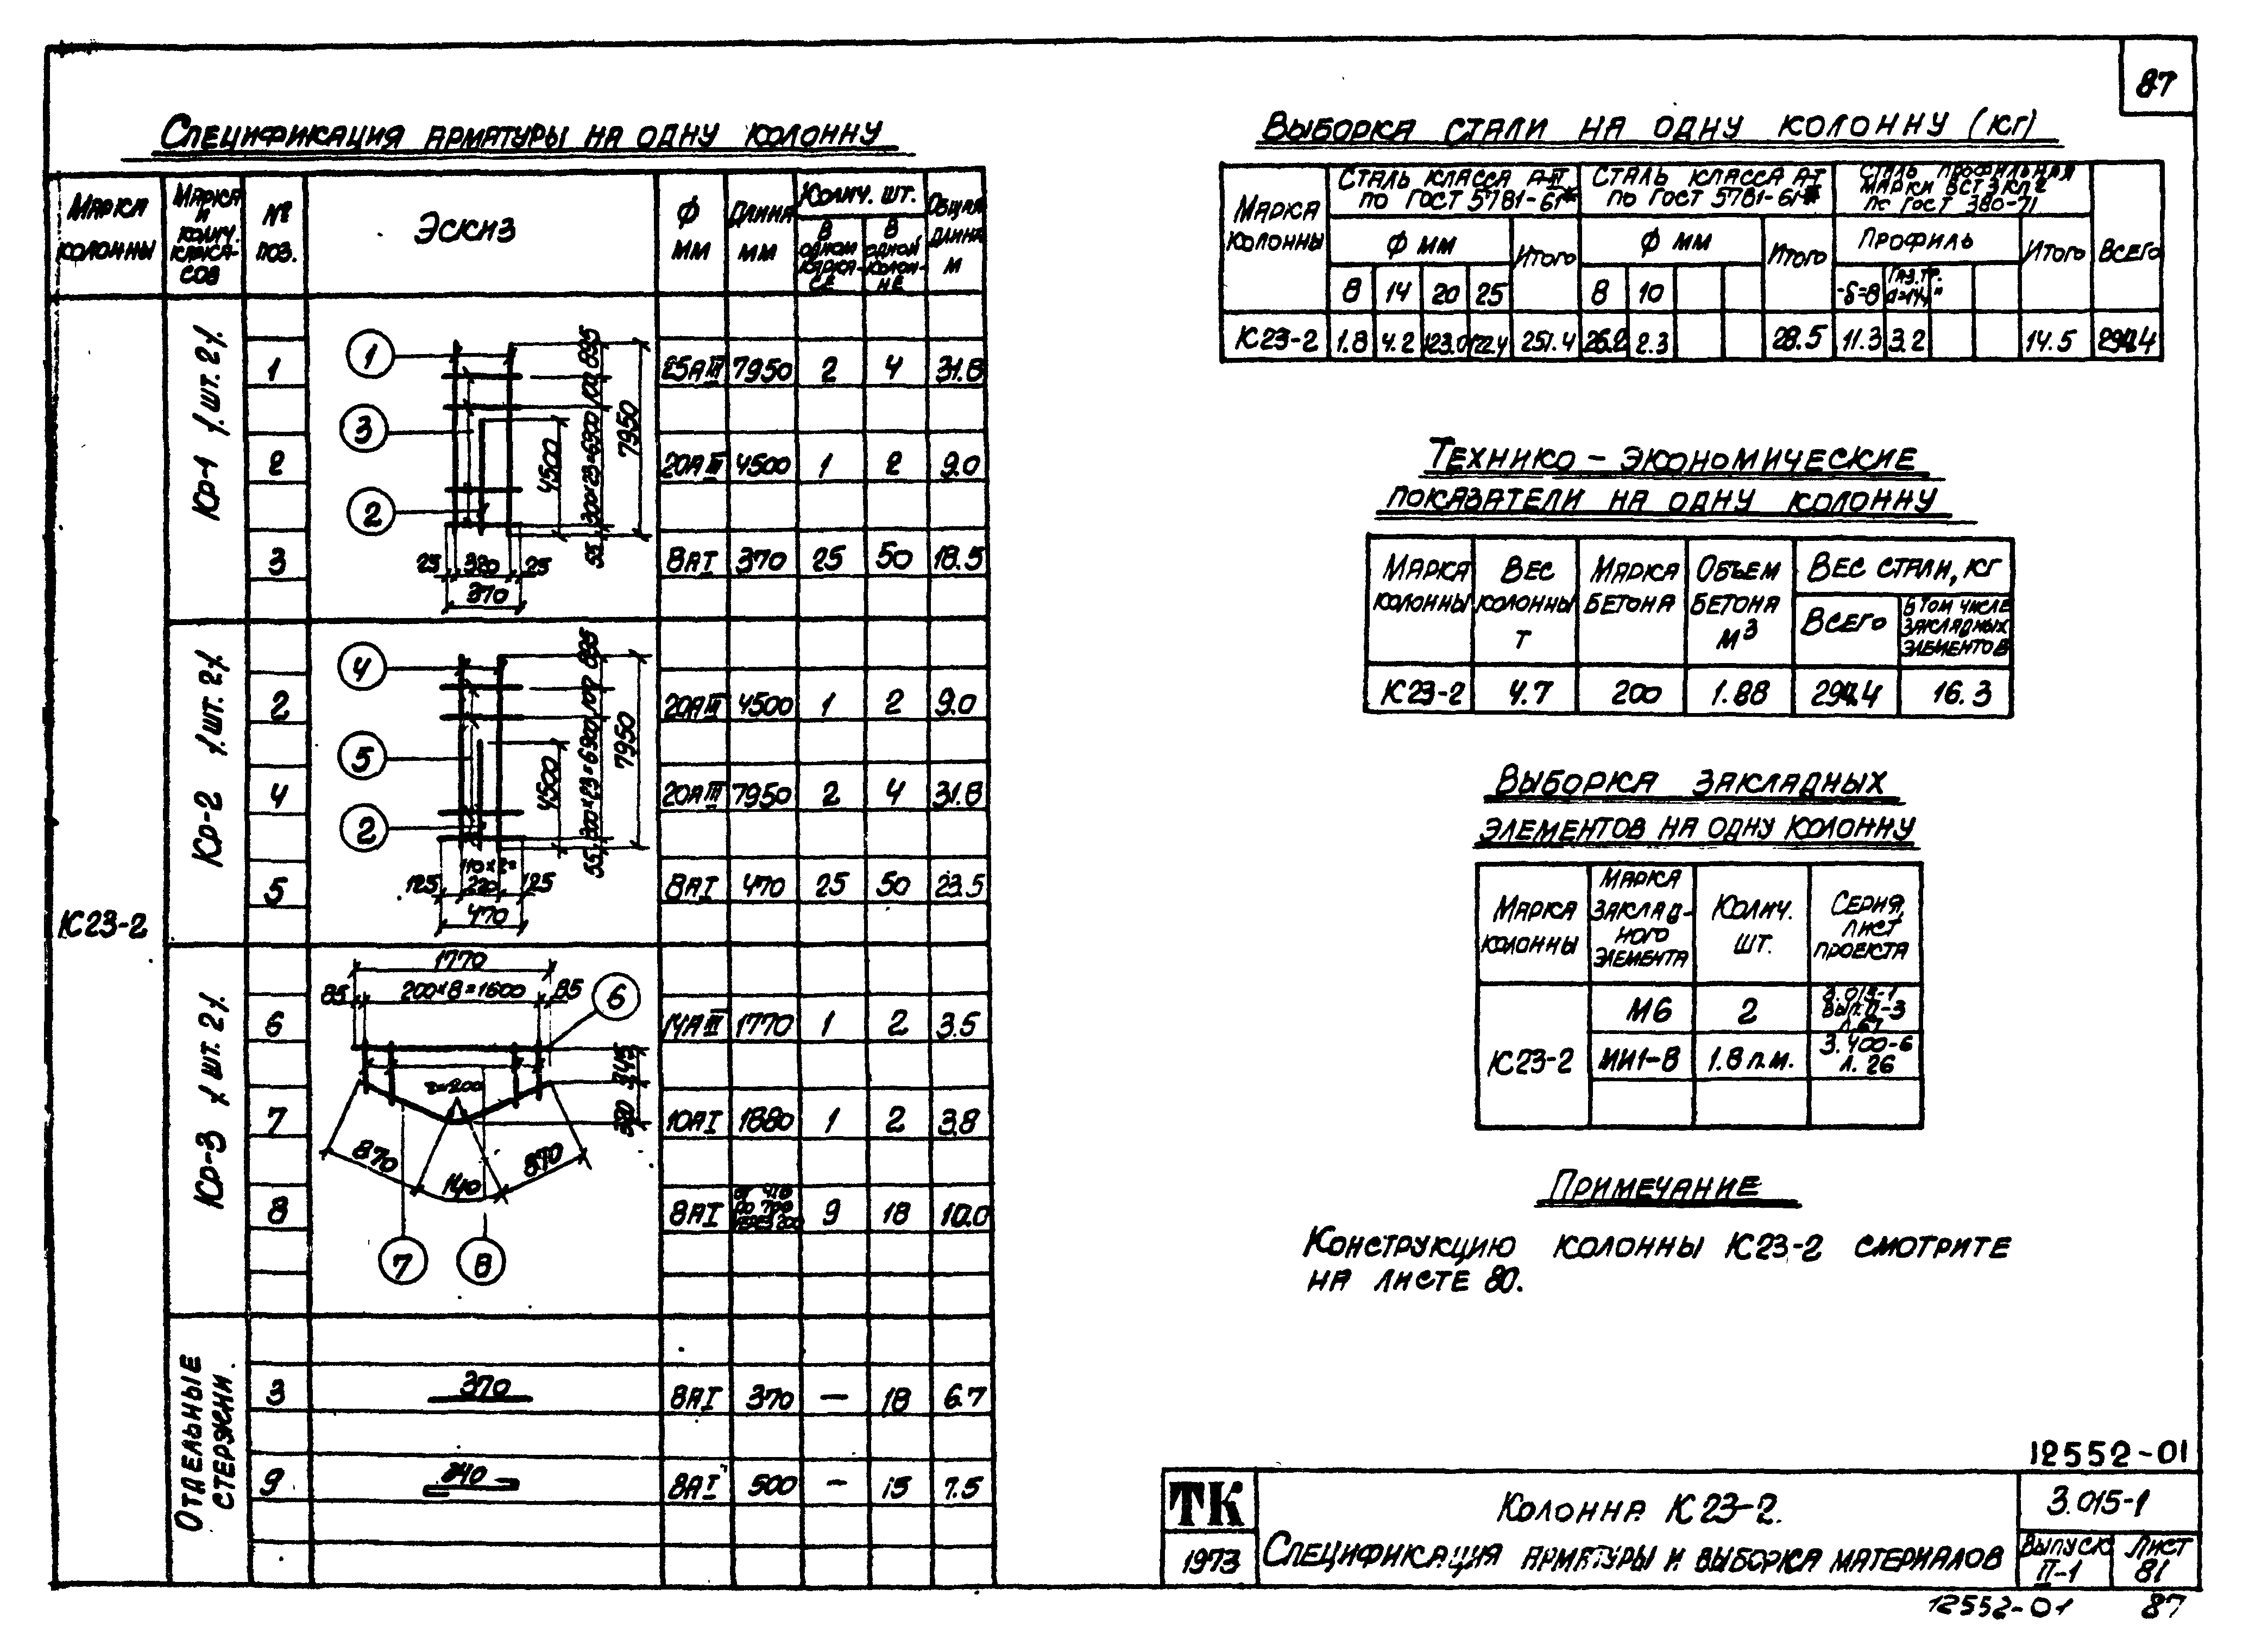 87
Спецификация арматуры на одну колонну
Марка колонны
Марка и колич. каркасов
№ поз.
Эскиз
Ф мм
Длина мм
Колич. шт.
В одном каркасе
В одной колонне
Общая длина м
К23-2
Кр-1 /шт. 2/
1 25АIII 7950 2 4 31.8
2 20АIII 4500 1 2 9.0
3 8АI 370 25 50 18.5
1
3
2
895
100
300×23=6900
55
7950
4500
25 320 25
370
Кр-2 /шт. 2/
2 20АIII 4500 1 2 9.0
4 20АIII 7950 2 4 31.8
5 8АI 470 25 50 23.5
4
5
2
895
100
300×23=6900
55
7950
4500
110×2=
125 220 125
470
Кр-3 /шт. 2/
6 14АIII 1770 1 2 3.5
7 10АI 1880 1 2 3.8
8 8АI 9 18 10.0
1770
85 200×8=1600 85
6
r=200
345
870 140 870
7 8
Отдельные стержни
3 370 8АI 370 — 18 6.7
9 240 8АI 500 — 15 7.5
Выборка стали на одну колонну (кг)
Марка колонны
Сталь класса А-III по ГОСТ 5781-61*
Сталь класса А-I по ГОСТ 5781-61*
Сталь профильная марки ВСт3кп2 по ГОСТ 380-71
Всего
Ф мм
Итого
Ф мм
Итого
Профиль
Итого
8 14 20 25
8 10
-δ=8
Газ. тр.
К23-2 1.8 4.2 123.0 122.4 251.4 26.2 2.3 28.5 11.3 3.2 14.5 294.4
Технико-экономические
показатели на одну колонну
Марка колонны
Вес колонны т
Марка бетона
Объем бетона м3
Вес стали, кг
Всего
В том числе закладных элементов
К23-2 4.7 200 1.88 294.4 16.3
Выборка закладных
элементов на одну колонну
Марка колонны
Марка закладного элемента
Колич. шт.
Серия, лист проекта
К23-2
М6 2 3.015-1 Вып. II-3 л. 67
МИ1-8 1.8 п.м. 3.400-6 л. 26
Примечание
Конструкцию колонны К23-2 смотрите
на листе 80.
12552-01
ТК
1973
Колонна К23-2.
Спецификация арматуры и выборка материалов
3.015-1
Выпуск II-1
Лист 81
12552-01 87